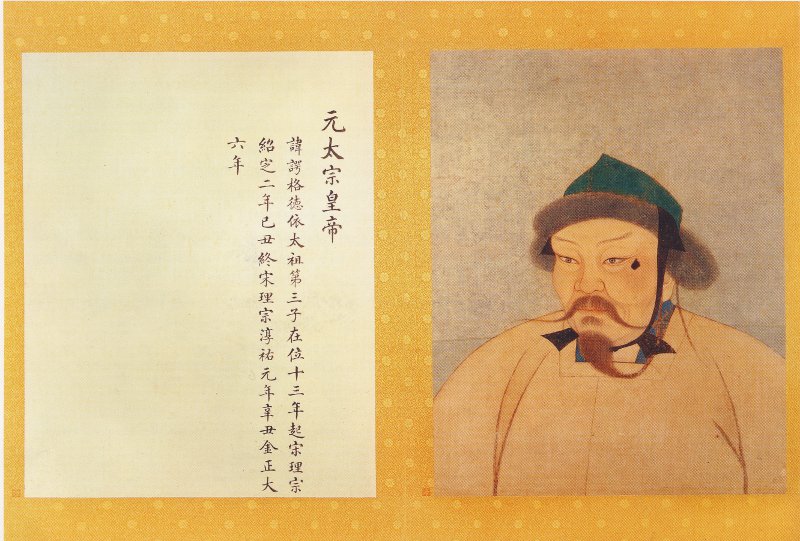 元太宗皇帝
諱諤格德依太祖第三子在位十三年起宋理宗
紹定二年已丑終宋理宗淳祐元年辛丑金正大
六年